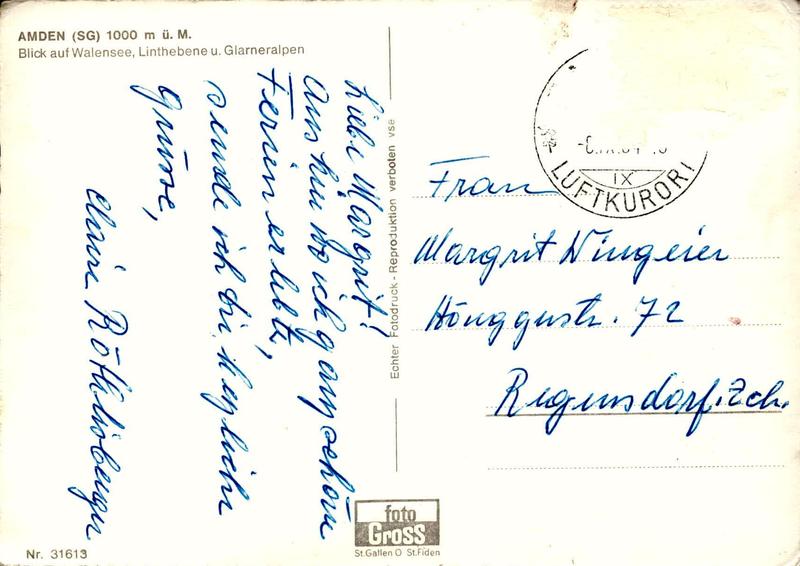 AMDEN (SG) 1000 m ü. M.
Blick auf Walensee, Linthebene u. Glarneralpen
Liebe Margrit!
Aus hier wo ich ganz schöne
Ferien erlebt,
sende ich dir herzliche
grüsse,
Claire Röthlisberger
Echter Fotodruck - Reproduktion verboten vse
IX
LUFTKURORT
Frau
Margrit Wingeier
Hönggustr. 72
Regensdorf. Zch.
foto
Gross
St.Gallen O St.Fiden
Nr. 31613